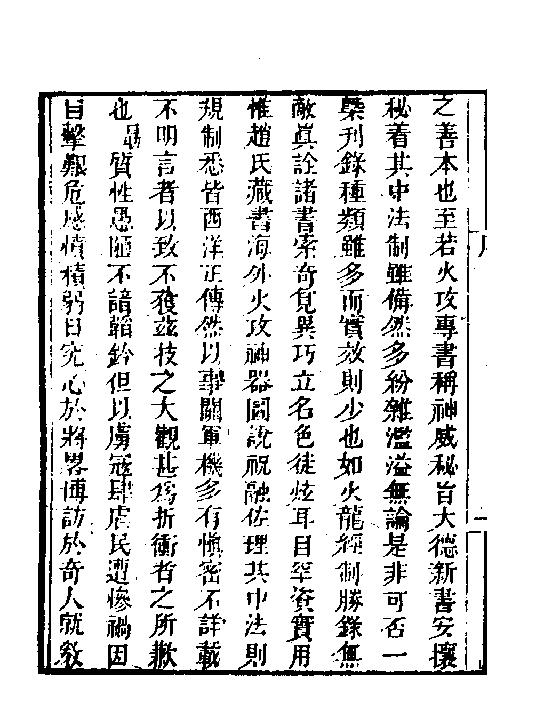 之善本也至若火攻專書稱神威秘旨大德新書安攘
秘着其中法制雖備然多紛雜濫溢無論是非可否一
槩刊錄種類雖多而實效則少也如火龍經制勝錄無
敵眞詮諸書索奇覓異巧立名色徒炫耳目罕資實用
惟趙氏藏書海外火攻神器圖說祝融佐理其中法則
規制悉皆西洋正傳然以事關軍機多有愼密不詳載
不明言者以致不獲茲技之大觀甚爲折衝者之所歉
也勗質性愚陋不諳韜鈐但以虜寇肆虐民遭慘禍因
目擊艱危感憤積弱日究心於將畧博訪於奇人就敎
序
一